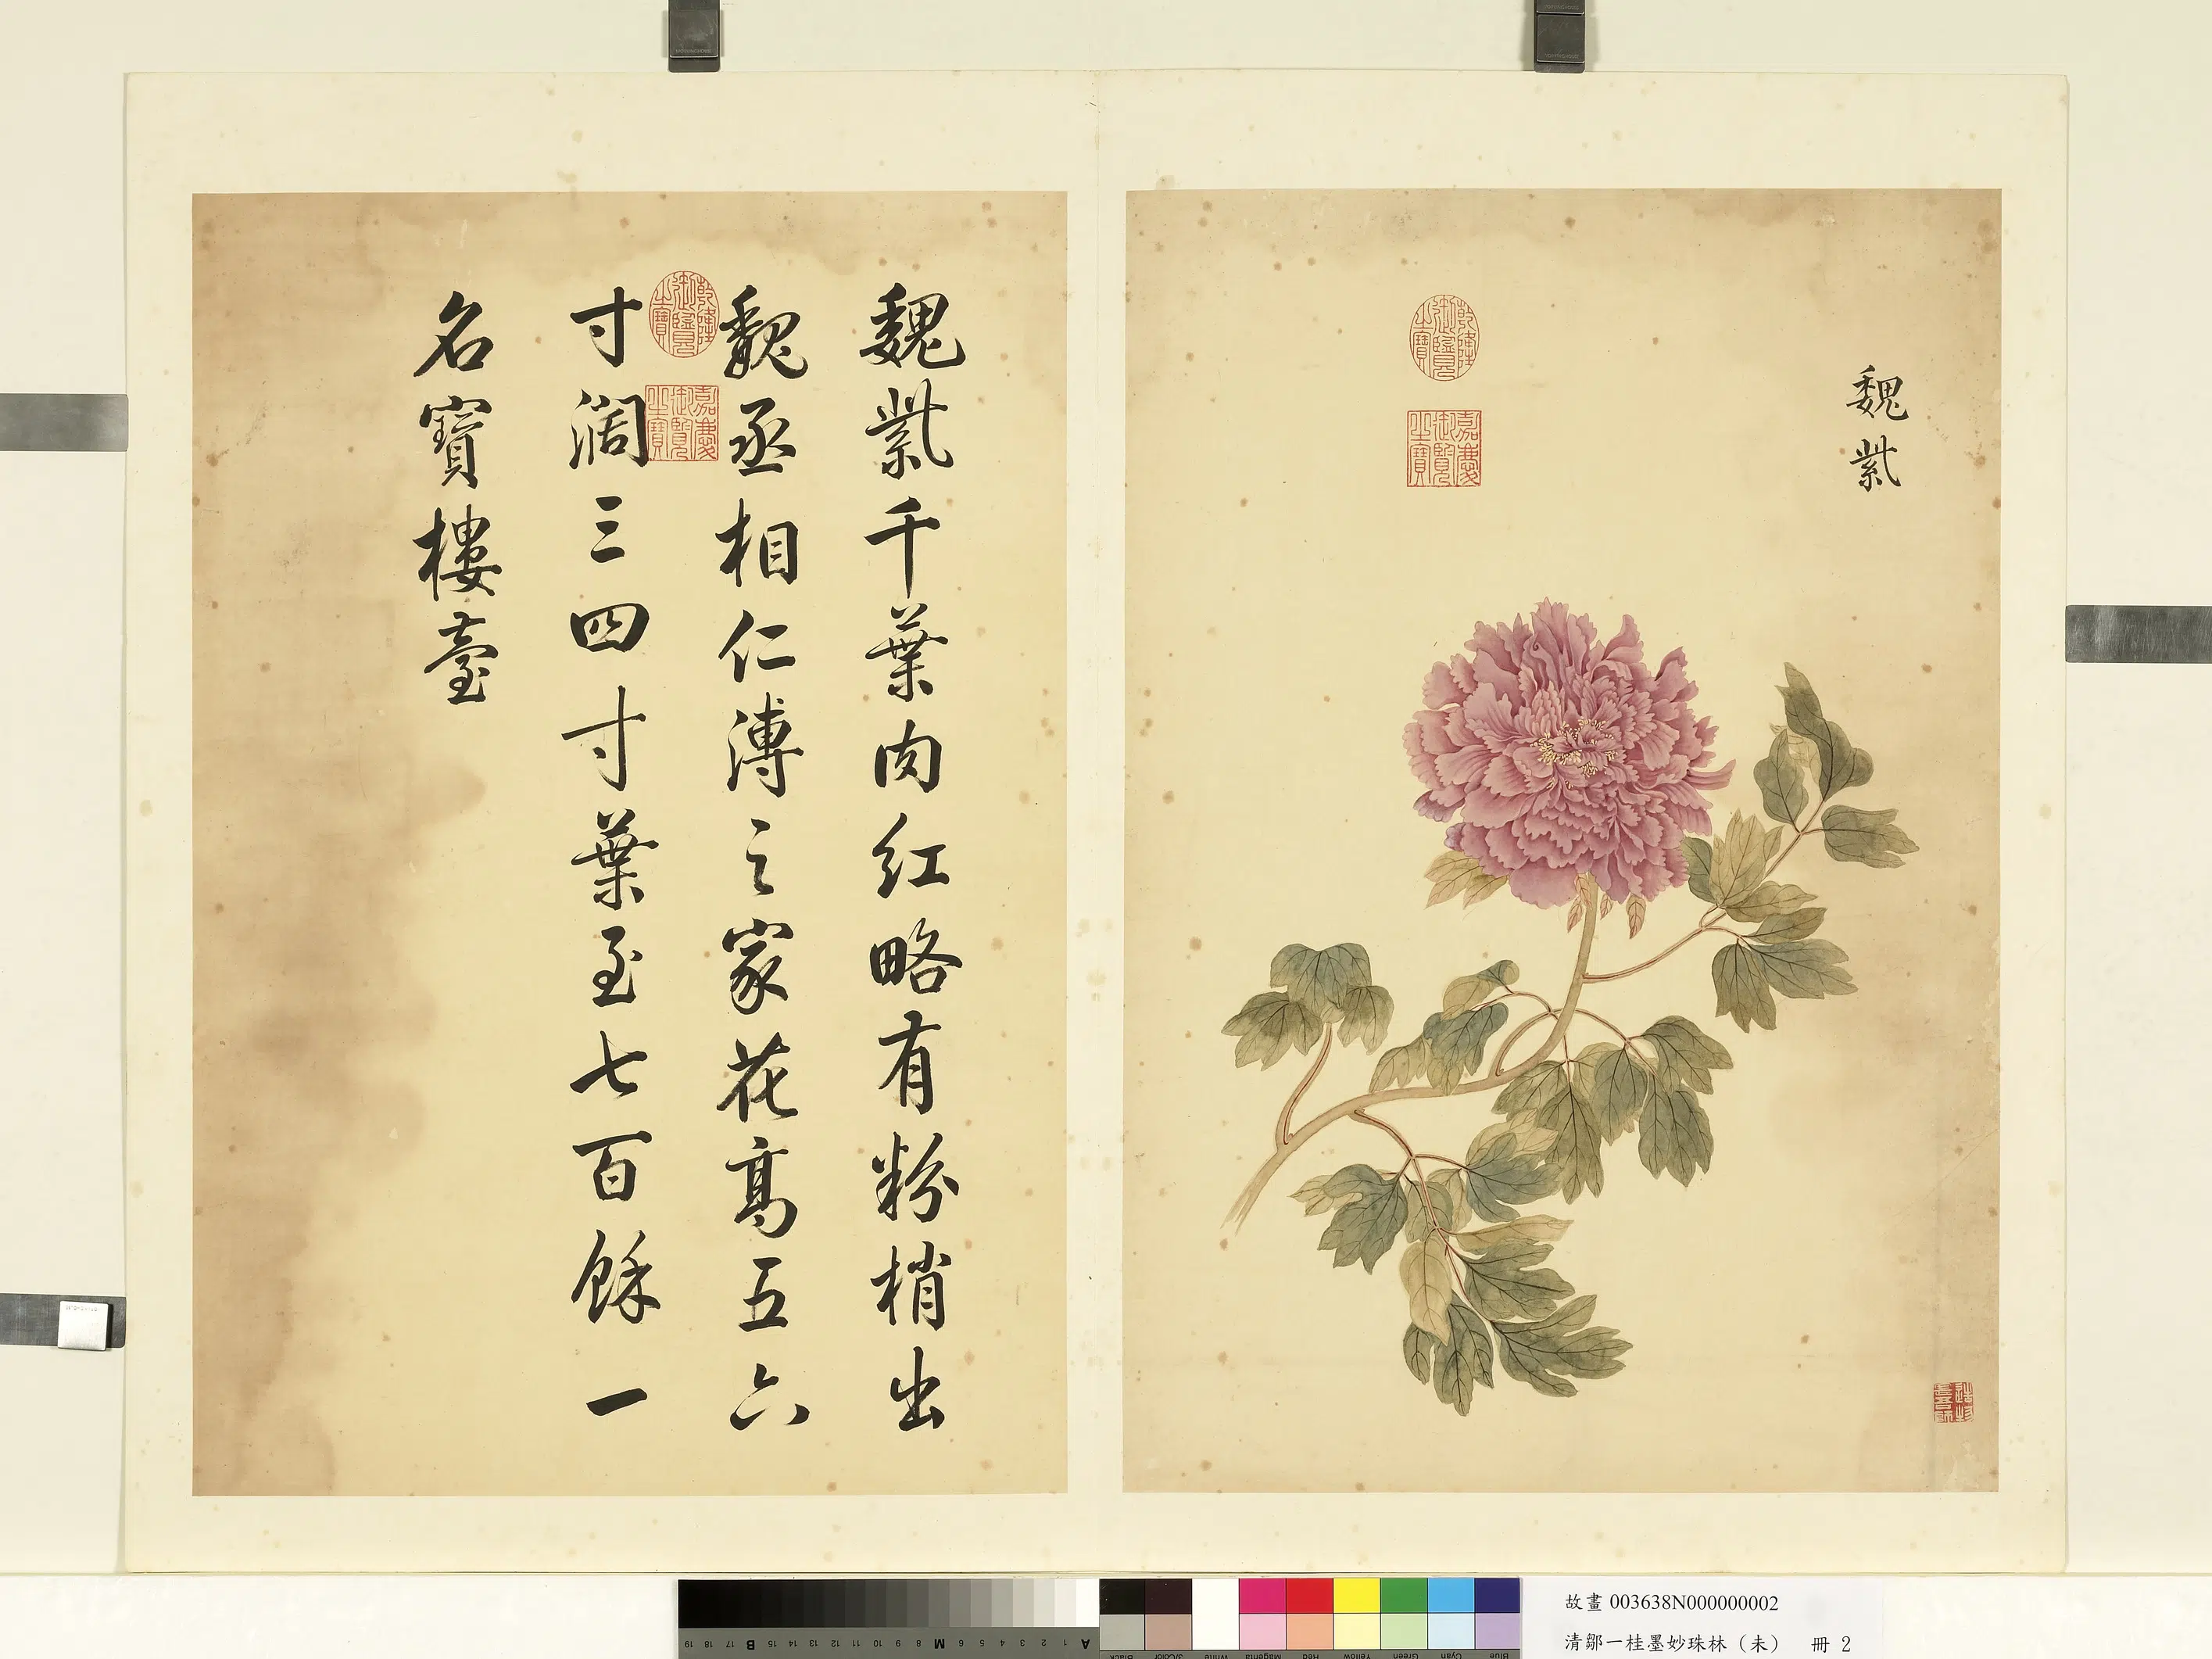 魏紫
乾隆御覽之寶
嘉慶御覽之寶
魏紫千葉肉红略有粉梢出
魏丞相仁溥之家花高五六
寸濶三四寸葉至七百餘一
名寶樓臺
乾隆御鑒之寶
嘉慶御覽之寶
故畫 003638N000000002
清鄒一桂墨妙珠林（未） 冊 2
19 18 17 B 15 14 13 12 11 10 9 8 M 6 5 4 3 2 1 A
Black 3/Color White Magenta Red Yellow Green Cyan Blue